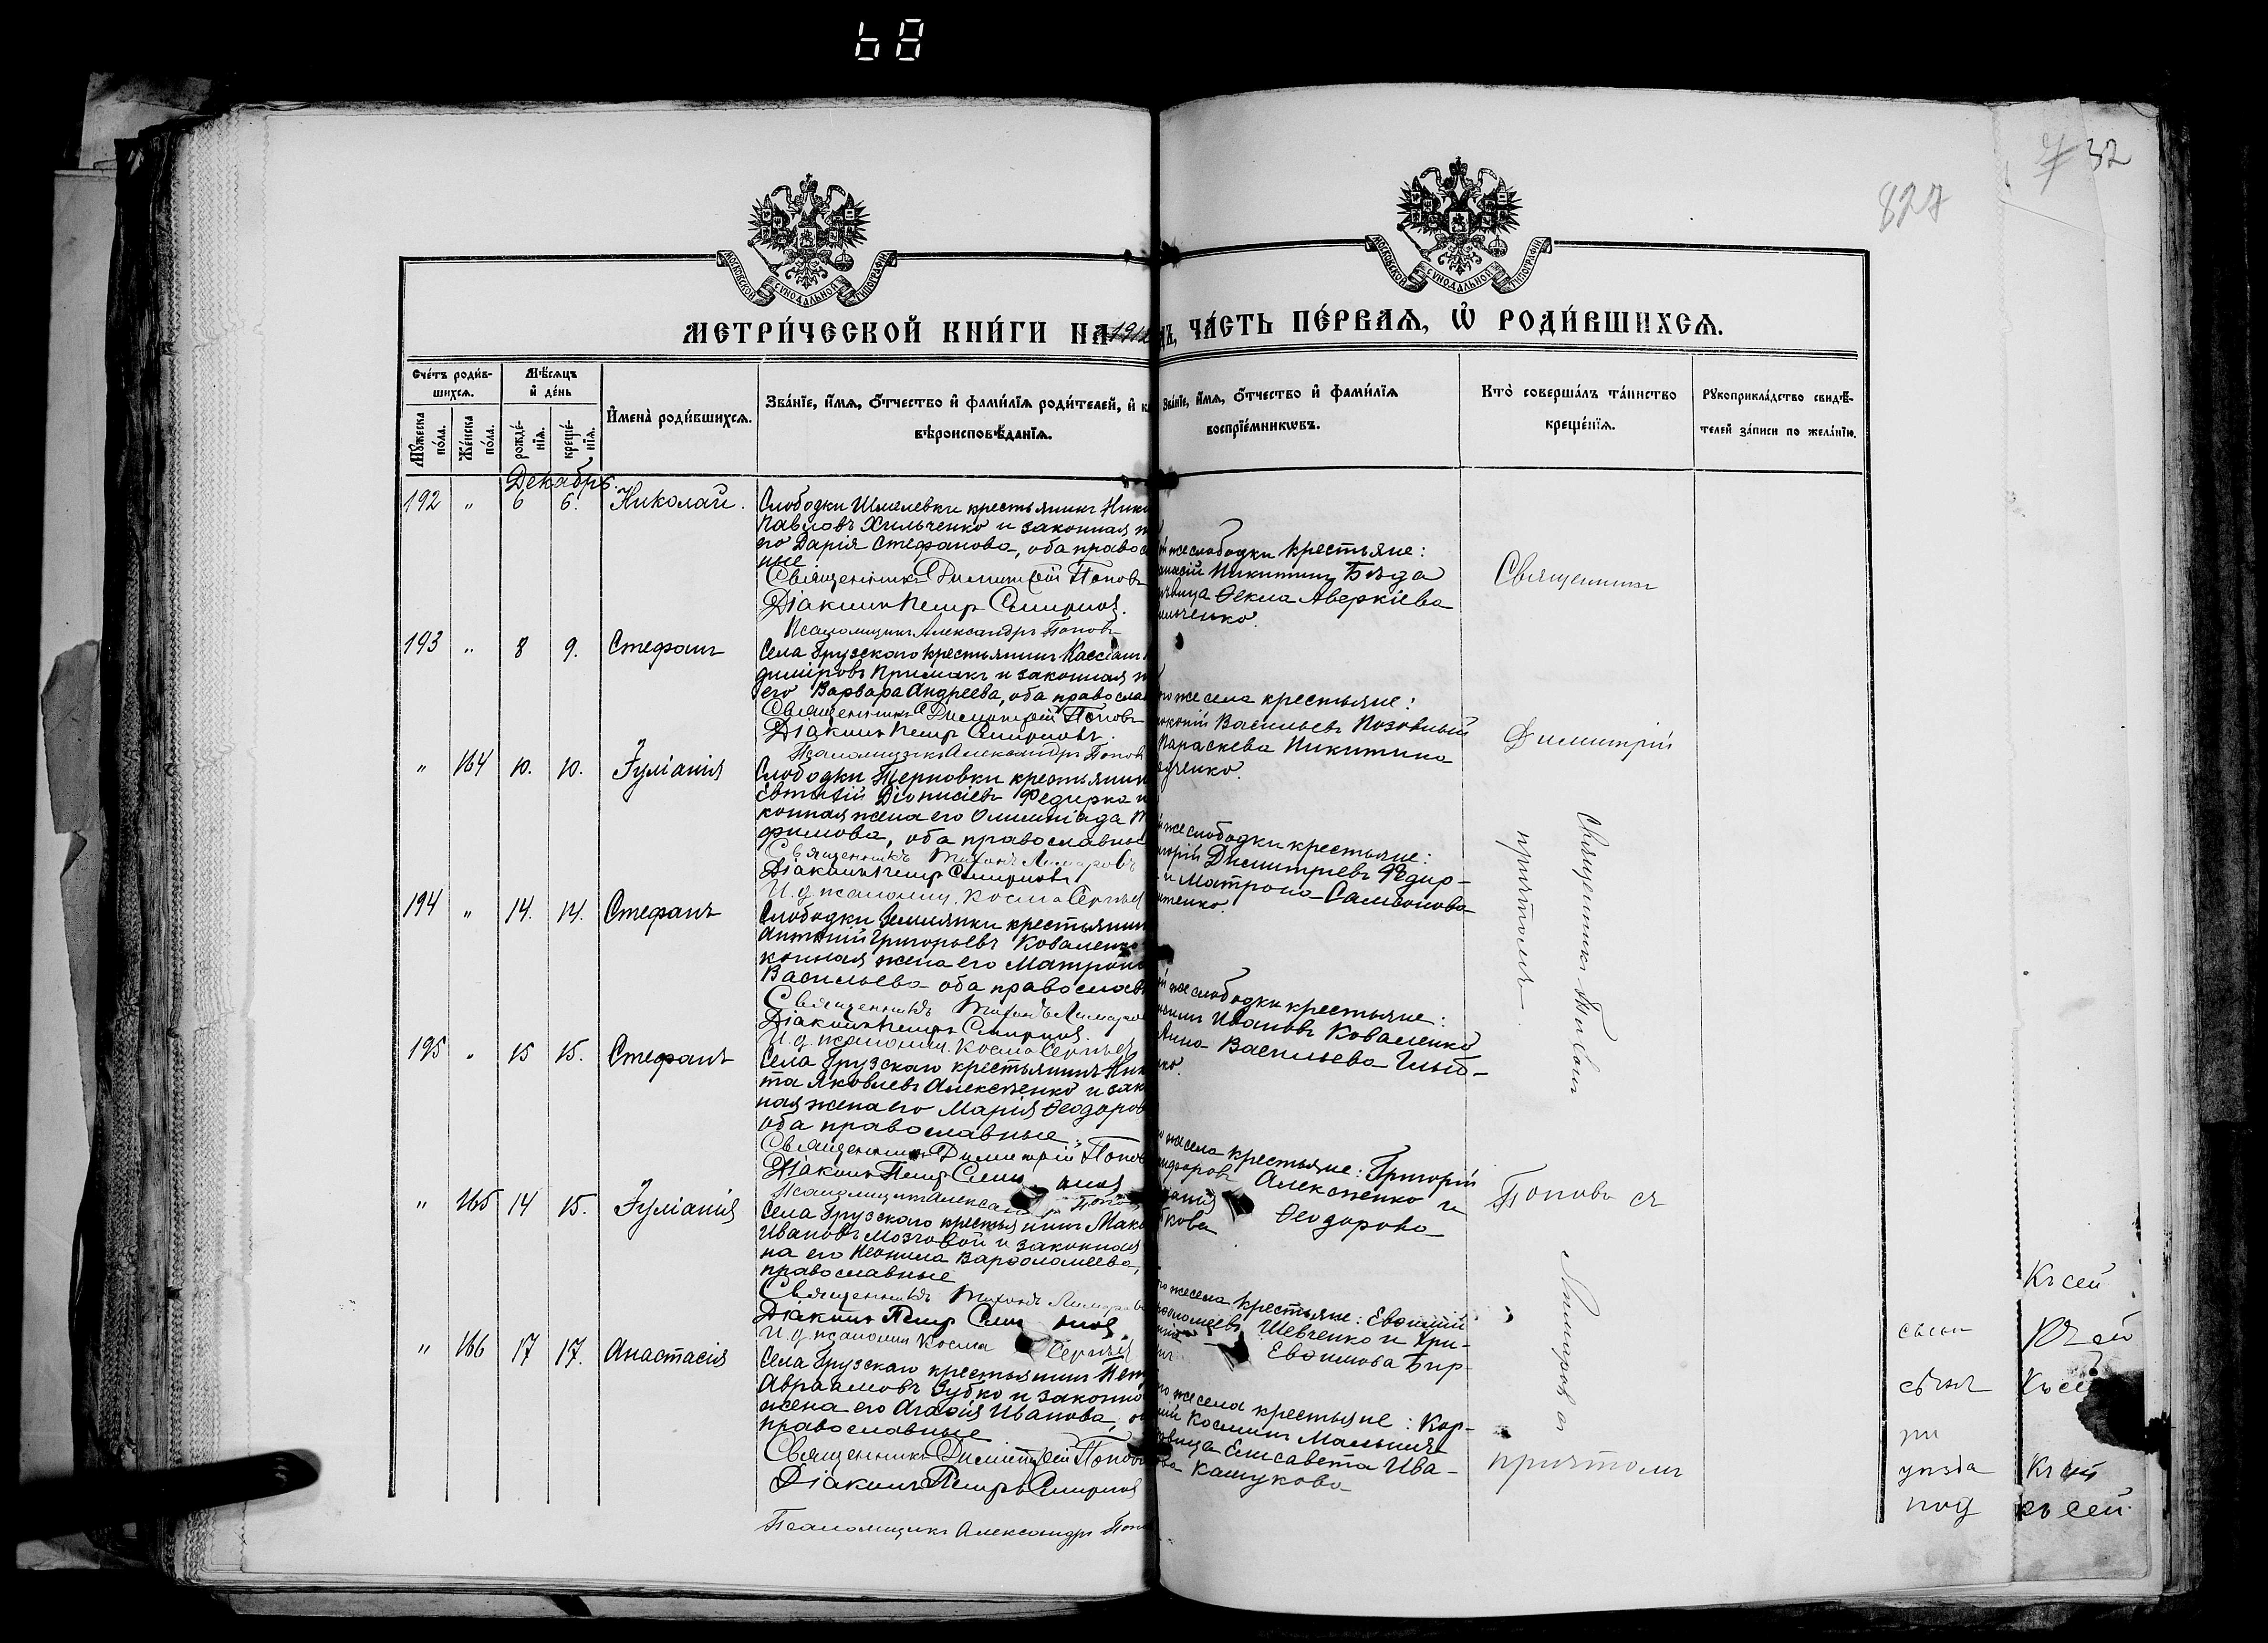 68
32
827
МОСКОВСКОЙ СѴНОДАЛЬНОЙ ТИПОГРАФІИ
МОСКОВСКОЙ СѴНОДАЛЬНОЙ ТИПОГРАФІИ
МЕТРИ́ЧЕСКОЙ КНИ́ГИ НА 191
ЧА́СТЬ ПЕ́РВАЯ, Ѡ҆ РОДИ́ВШИХСЯ.
Сче́тъ роди́в-
шихсѧ.
Мѣ́сѧцъ
и҆ де́нь
Мꙋ́жеска по́ла.
Же́нска по́ла.
рожде́-
нїѧ.
креще́-
нїѧ.
И҆мена̀ роди́вшихсѧ.
Зва́нїе, и҆́мѧ, ѻ҆́тчество и҆ фами́лїѧ роди́телей, и҆
вѣроисповѣ́данїѧ.
Зва́нїе, и҆́мѧ, ѻ҆́тчество и҆ фами́лїѧ
воспрїе́мникѡвъ.
Кто̀ соверша́лъ та́инство
креще́нїѧ.
Рꙋкоприкла́дство свидѣ́-
телей за́писи по жела́нїю.
Декабрь.
192 " 6 6. Николай.
Слободки Шмелевки крестьянинъ Ник
Павловъ Хильченко и законная
его Дарія Стефанова, оба правос
ные.
Священникъ Димитрій Поповъ
Діаконъ Петръ Смирновъ.
Псаломщикъ Александръ Поповъ
же слободки крестьяне:
Никитинъ Бѣда
Ѳекла Аверкіева
Священникъ
193 " 8 9. Стефанъ
Села Грузскаго крестьянинъ Кассіанъ
диміровъ Примакъ и законная
его Варвара Андреева, оба правосла
Священникъ Димитрій Поповъ
Діаконъ Петръ Смирновъ.
Псаломщикъ Александръ Попов
же села крестьяне:
Васильевъ Позовный
Параскева Никитина
Димитрій
" 164 10. 10. Іуліанія
Слободки Терновки крестьянин
Евтихій Діонисіевъ Федирка и
конная жена его Олимпіада
фимова, оба православные
Священникъ Тихонъ Лимаровъ
Діаконъ Петръ Смирновъ
И. д. псаломщ. Косма Сергѣев
же слободки крестьяне:
Димитріевъ Ѳедир-
и Матрона Самсонова
194 " 14. 14. Стефанъ
Слободки Землянки крестьянин
Антоній Григорьевъ Коваленко
конная жена его Матрона
Васильева оба православ
Священникъ Тихонъ Лимаро
Діаконъ Петръ Смирновъ.
И. д. псаломщ. Косма Сергѣев
же слободки крестьяне:
Ивановъ Коваленко
Анна Васильева Глыб-
195 " 15 15. Стефанъ
Села Грузскаго крестьянинъ Ник
та Яковлевъ Алексѣенко и зак
ная жена его Марія Ѳеодоров
оба православные.
Священникъ Димитрій Попов
Діаконъ Петръ Смирновъ
Псаломщикъ Александръ Попо
же села крестьяне: Григорій
Алексѣенко и
Ѳеодорова
Священникъ Тихонъ
Поповъ съ
" 165 14 15. Іуліанія
Села Грузскаго крестьянинъ Мака
Ивановъ Мозговой и законная
на его Неонила Варѳоломеева,
православные
Священникъ Тихонъ Лимаров
Діаконъ Петръ Смирновъ
И. д. псаломщ Косма Сергѣев
же села крестьяне: Евѳимій
Шевченко и Хри-
Евѳимова Бир-
Лимаровъ съ
" 166 17 17. Анастасія
Села Грузскаго крестьянинъ Пет
Авраамовъ Зубко и законна
жена его Агаѳія Иванова,
православные
Священникъ Димитрій Попов
Діаконъ Петръ Смирновъ
Псаломщикъ Александръ Поп
же села крестьяне: Кор-
Косминъ Мальцевъ
Елисавета Ива-
Кашукова
причтомъ
Къ сей
уѣзда
под
къ сей